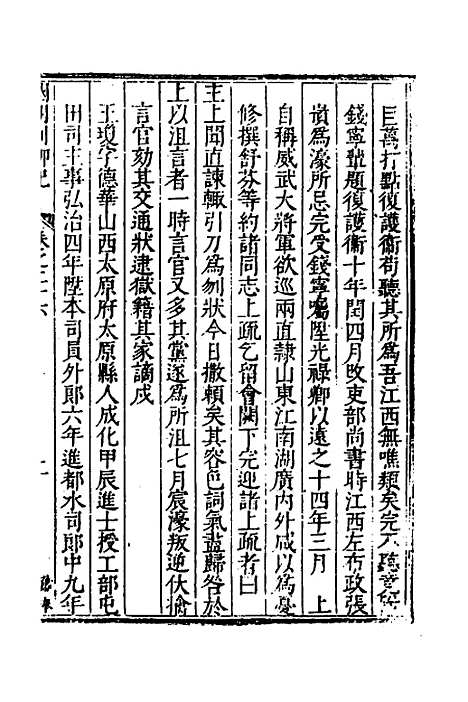 巨萬打點復護衛苟聽其所為吾江西無噍類矣完不
錢寧輩題復護衛十年閏四月改吏部尚書時江西左布政張
嵿為濠所忌完受錢寧囑陞光祿卿以遠之十四年三月　上
自稱威武大將軍欲巡兩直隸山東江南湖廣內外咸以為憂
修撰舒芬等約諸同志上疏乞留會闕下完迎諸上疏者曰
主上聞直諫輒引刀為刎狀今日撒賴矣其容色詞氣盖歸咎於
上以沮言者一時言官又多其黨遂為所沮七月宸濠叛逆伏擒
言官劾其交通狀逮獄籍其家謫戍
王瓊字德華山西太原府太原縣人成化甲辰進士授工部屯
田司主事弘治四年陞本司員外郎六年進都水司郎中九年
國朝列卿記
卷之二十六